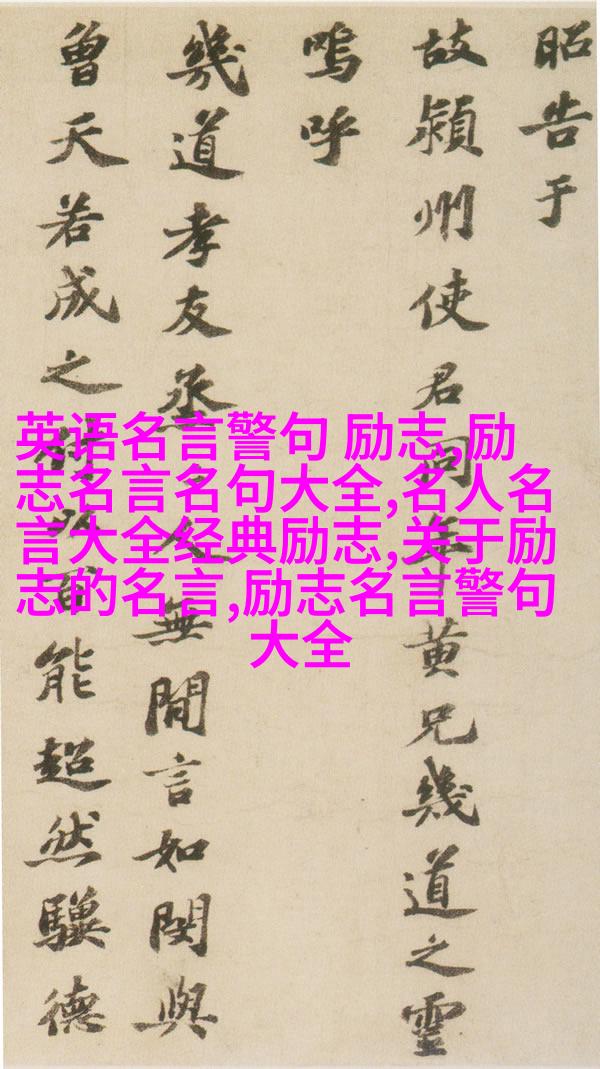 昭告于
故潁州使君同年黄兄幾道之靈
嗚呼
幾道孝友烝人無閒言如閔與
曾天若成之百能超然驥德
英语名言警句 励志,励
志名言名句大全,名人名
言大全经典励志,关于励
志的名言,励志名言警句
大全